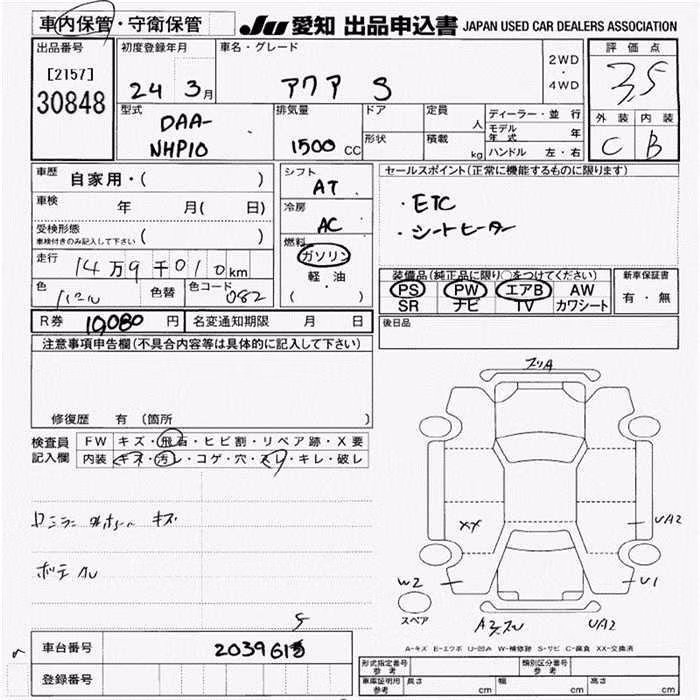 車内保管・守衛保管
JU 愛知 出品申込書 JAPAN USED CAR DEALERS ASSOCIATION
出品番号
[2157]
30848
初度登録年月
24 3月
車名・グレード
アクア S
2WD
・
4WD
評価点
3,5
外装 内装
C B
型式
DAA-
NHP10
排気量
1500 CC
ドア
形状
定員
人
積載
kg
ディーラー・並行
モデル年式 年
ハンドル 左・右
車歴
自家用・( )
車検
年 月( 日)
受検形態
車検付きのみ記入して下さい ( )
走行
14万9千010km
色
色替
色コード
082
シフト
AT
冷房
AC
燃料
ガソリン
・
軽油
( )
セールスポイント(正常に機能するものに限ります)
・ETC
・シートヒーター
装備品(純正品に限り○をつけてください)
PS PW エアB AW
SR ナビ TV カワシート
新車保証書
有・無
R券 19080 円 名変通知期限 月 日
後日品
注意事項申告欄(不具合内容等は具体的に記入して下さい)
修復歴 有 (箇所 )
検査員
記入欄
FW キズ・飛石・ヒビ割・リペア跡・X要
内装 キズ・汚レ・コゲ・穴・スレ・キレ・破レ
キズ
XX
UA2
W2
U1
スペア
UA2
A-キズ E-エクボ U-凹み W-補修跡 S-サビ C-腐食 XX-交換済
車台番号
2039615
5
登録番号
形式指定番号
参考
類別区分番号
参考
車庫証明用
参考
長さ cm 幅 cm 高さ cm